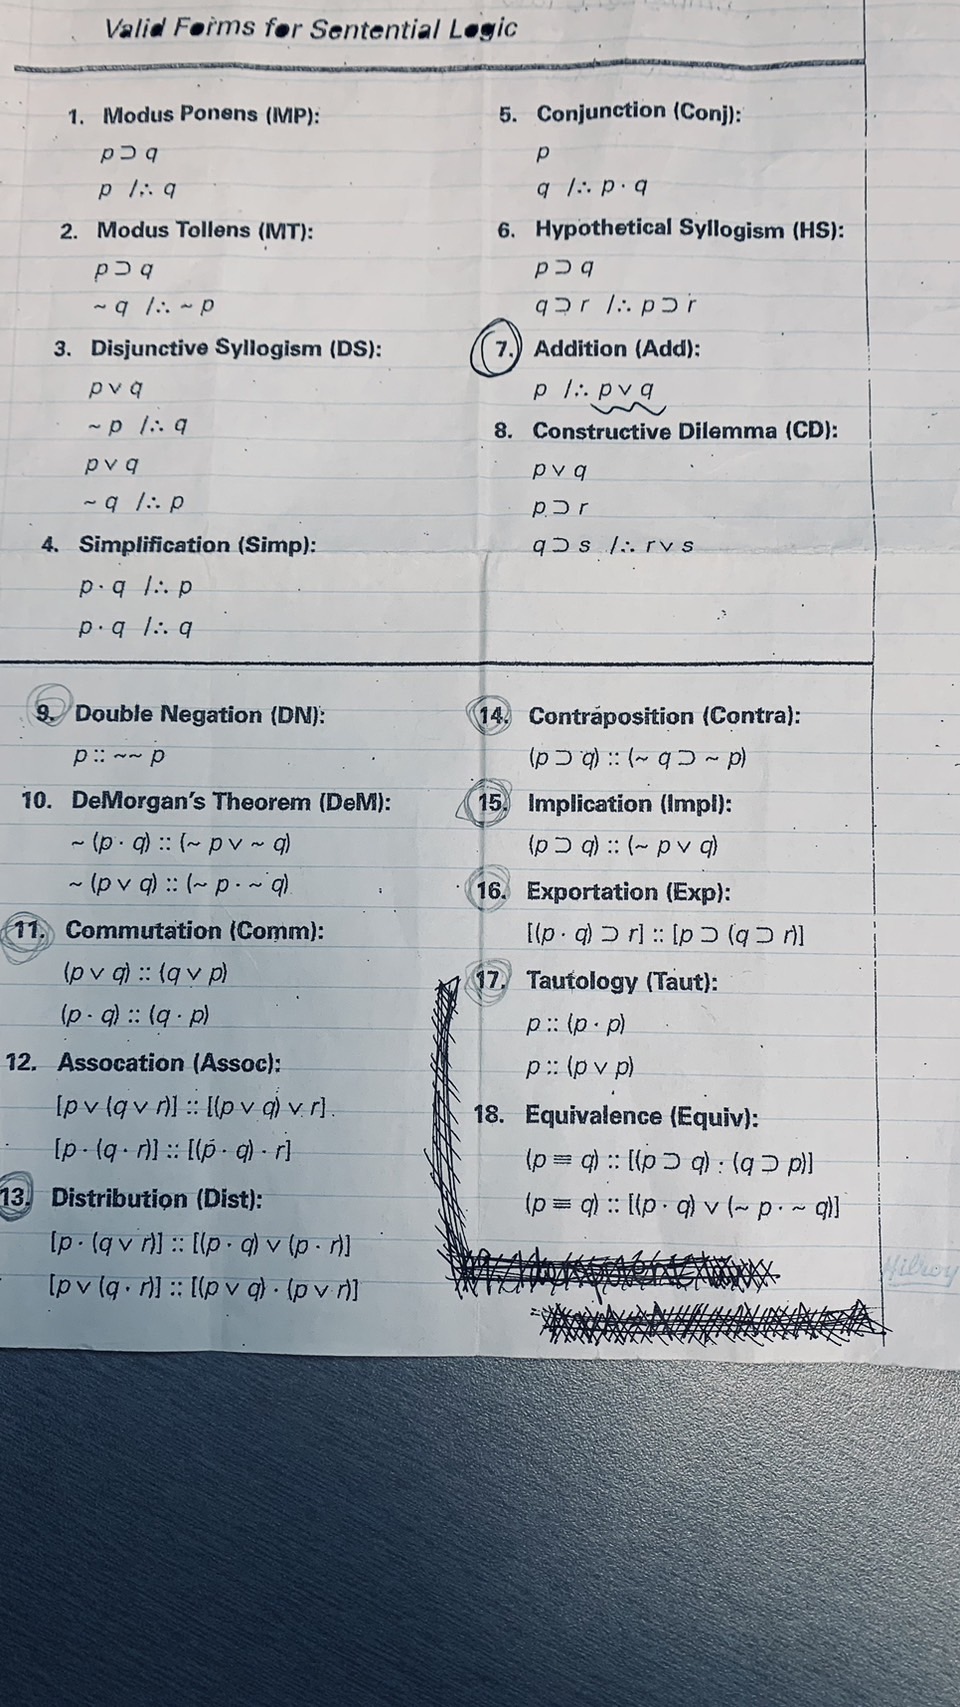 Valid Forms for Sentential Logic
1. Modus Ponens (MP):
p ⊃ q
p /∴ q
2. Modus Tollens (MT):
p ⊃ q
~ q /∴ ~ p
3. Disjunctive Syllogism (DS):
p v q
~ p /∴ q
p v q
~ q /∴ p
4. Simplification (Simp):
p · q /∴ p
p · q /∴ q
5. Conjunction (Conj):
p
q /∴ p · q
6. Hypothetical Syllogism (HS):
p ⊃ q
q ⊃ r /∴ p ⊃ r
7. Addition (Add):
p /∴ p v q
8. Constructive Dilemma (CD):
p v q
p ⊃ r
q ⊃ s /∴ r v s
9. Double Negation (DN):
p :: ~~ p
10. DeMorgan's Theorem (DeM):
~ (p · q) :: (~ p v ~ q)
~ (p v q) :: (~ p · ~ q)
11. Commutation (Comm):
(p v q) :: (q v p)
(p · q) :: (q · p)
12. Assocation (Assoc):
[p v (q v r)] :: [(p v q) v r]
[p · (q · r)] :: [(p · q) · r]
13. Distribution (Dist):
[p · (q v r)] :: [(p · q) v (p · r)]
[p v (q · r)] :: [(p v q) · (p v r)]
14. Contraposition (Contra):
(p ⊃ q) :: (~ q ⊃ ~ p)
15. Implication (Impl):
(p ⊃ q) :: (~ p v q)
16. Exportation (Exp):
[(p · q) ⊃ r] :: [p ⊃ (q ⊃ r)]
17. Tautology (Taut):
p :: (p · p)
p :: (p v p)
18. Equivalence (Equiv):
(p ≡ q) :: [(p ⊃ q) · (q ⊃ p)]
(p ≡ q) :: [(p · q) v (~ p · ~ q)]
Hilroy